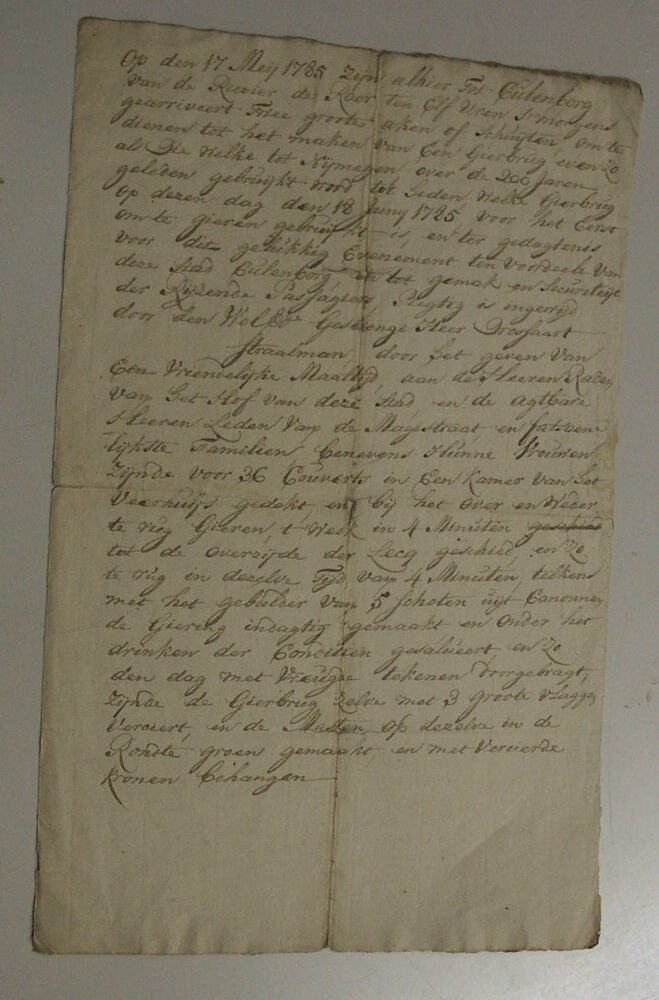 Op den 17 Meij 1785 Zijn alhier Tot Culenborg
van de Rievier de Roer ten Elf Uren Smorgens
gearriveert Twee groote aken of Schuijten, om te
dienen tot het maken van Een Gierbrug even Zo
als Die Welke tot Nijmegen over de 200 Jaren
geleden gebruijkt word tot heden, welke Gierbrug
op dezen dag den 18 Junij 1785 voor het Eerst
om te gieren gebruijkt is, en ter gedagtenis
voor dit gelukkig Evenement ten voordeele van
deze Stad Culenborg en tot gemak en Securiteijt
der Rijzende Pasfagiers Plegtig is ingewijd
door den Welgeb Gestrenge Heer Drossaart
Straalman door het geven van
Een Vriendelijke Maaltijd, aan de Heeren Raden
van het Hof van deze Stad en de agtbare
Heeren Leden Van de Magistraat en fatzoen
lijkste Familien benevens Hunne Vrouwen
Zijnde voor 36 Couverts in Een Kamer van het
Veerhuijs gedekt en bij het over en Weder
te rug Gieren, t Welk in 4 Minuten geschied
tot de overzijde der Lecq geschied en Zo
te rug in dezelve Tijd van 4 Minuten, telkens
met het gebulder van 5 Schoten uijt Canonnen
de Giering indagtig gemaakt en Onder het
drinken der Conditien gesalueert en Zo
den dag met Vreugde tekenen Doorgebragt,
Zijnde de Gierbrug Zelve met 3 groote Vlagge
Verciert, en de Masten, op dezelve in de
Rondte groen gemaakt, en met Vercierde
kronen behangen